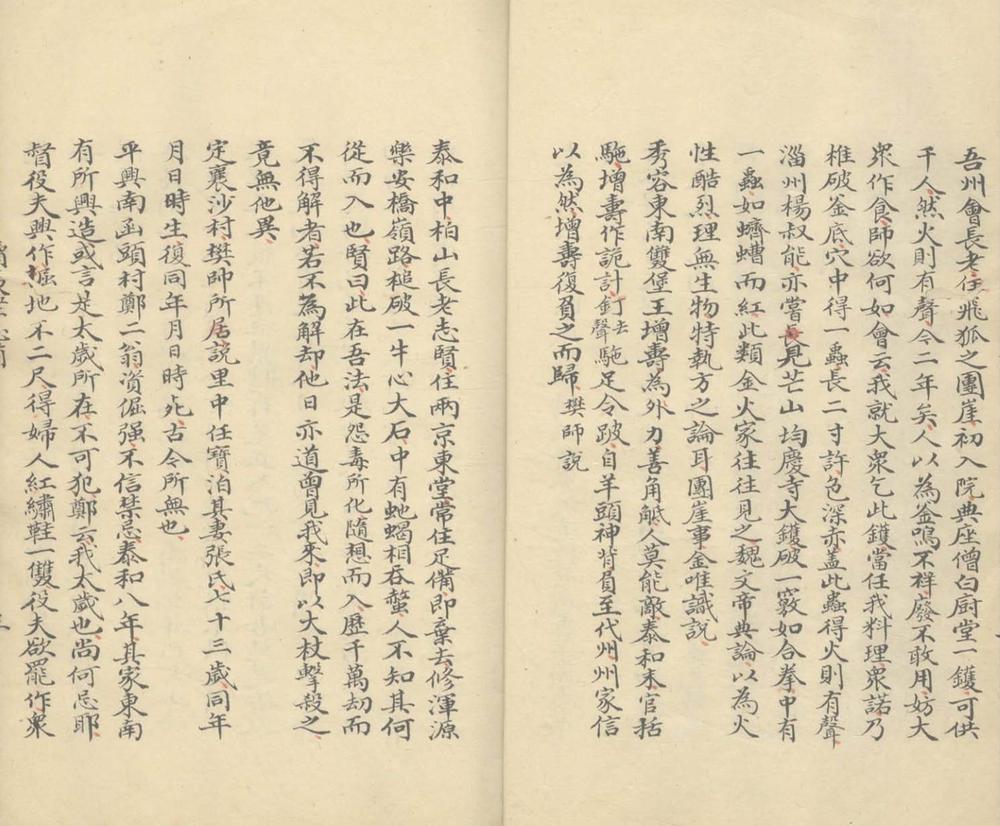 吾州會長老住飛狐之團崖初入院典座僧白厨堂一鑊可供
千人然火則有聲今二年矣人以為釜鳴不祥廢不敢用妨大
衆作食師欲何如會云我就大衆乞此鑊當任我料理衆諾乃
椎破釜底穴中得一蟲長二寸許色深赤盖此蟲得火則有聲
淄州楊叔能亦嘗見芒山均慶寺大鑊破一竅如合拳中有
一蟲如蠐螬而紅此類金火家往往見之魏文帝典論以為火
性酷烈理無生物特執方之論耳團崖事金唯識說
秀容東南雙堡王增壽為外力善角觝人莫能敵泰和末官括
駞增壽作詭計釘去聲駞足令跛自羊頭神背負至代州州家信
以為然增壽復負之而歸樊師説
泰和中柏山長老志賢住兩京東堂常住足備即棄去修渾源
樂安橋嶺路槌破一牛心大石中有虵蝎相吞螫人不知其何
從而入也賢曰此在吾法是怨毒所化隨想而入歷千萬劫而
不得解者若不為解却他日亦道曽見我來即以大杖擊殺之
竟無他異
定襄沙村樊帥所居説里中任寶洎其妻張氏七十三歲同年
月日時生復同年月日時死古今所無也
平輿南函頭村鄭二翁資倔强不信禁忌泰和八年其家東南
有所興造或言是太歲所在不可犯鄭云我太歲也尚何忌耶
督役夫興作掘地不二尺得婦人紅繡鞋一雙役夫欲罷作衆